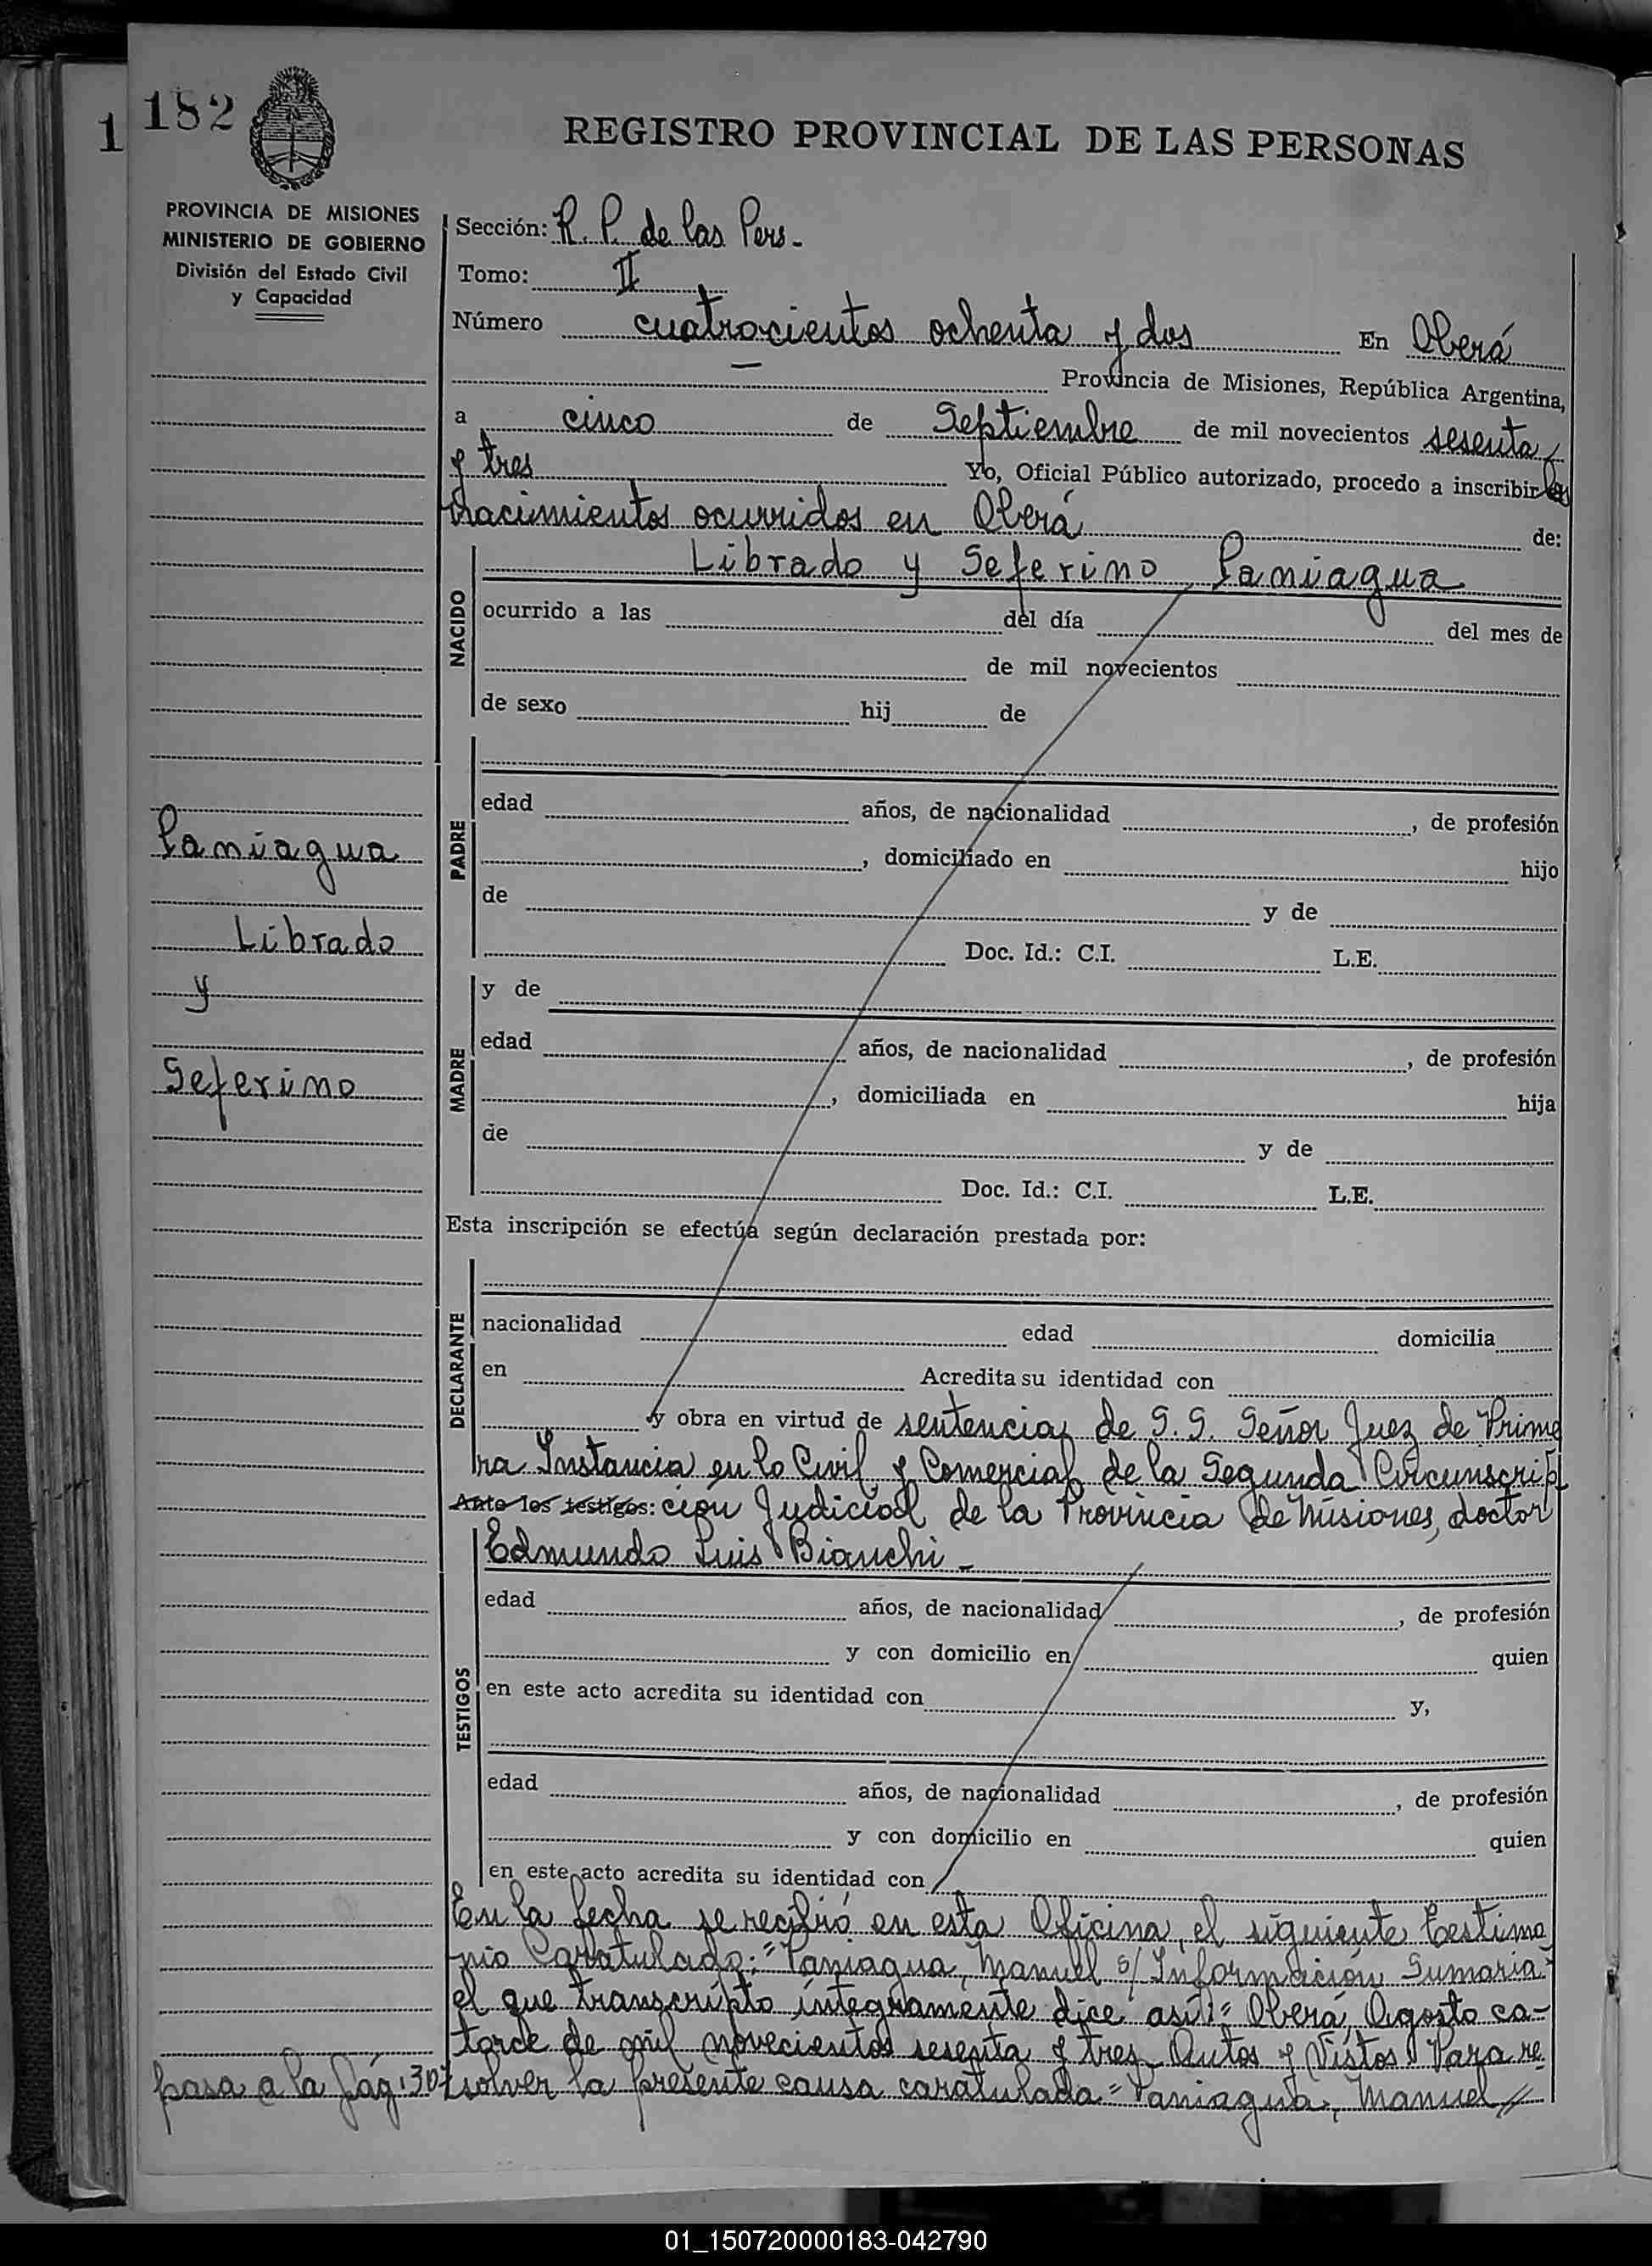 1 182
REGISTRO PROVINCIAL DE LAS PERSONAS
PROVINCIA DE MISIONES
MINISTERIO DE GOBIERNO
División del Estado Civil
y Capacidad
Sección: R. P. de las Pers.-
Tomo: II
Número cuatrocientos ochenta y dos En Oberá
Provincia de Misiones, República Argentina,
a cinco de Septiembre de mil novecientos sesenta
y tres Yo, Oficial Público autorizado, procedo a inscribir los
nacimientos ocurridos en Oberá de:
Librado y Seferino Paniagua
NACIDO
ocurrido a las del día del mes de
de mil novecientos
de sexo hij de
Paniagua
Librado
y
Seferino
PADRE
edad años, de nacionalidad , de profesión
, domiciliado en hijo
de y de
Doc. Id.: C.I. L.E.
MADRE
y de
edad años, de nacionalidad , de profesión
, domiciliada en hija
de y de
Doc. Id.: C.I. L.E.
Esta inscripción se efectúa según declaración prestada por:
DECLARANTE
nacionalidad edad domicilia
en Acredita su identidad con
y obra en virtud de sentencia de S. S. Señor Juez de Prime
ra Instancia en lo Civil y Comercial de la Segunda Circunscrip
Ante los testigos: ción Judicial de la Provincia de Misiones, doctor
Edmundo Luis Bianchi -
TESTIGOS
edad años, de nacionalidad , de profesión
y con domicilio en quien
en este acto acredita su identidad con y,
edad años, de nacionalidad , de profesión
y con domicilio en quien
en este acto acredita su identidad con
En la fecha se recibió en esta Oficina, el siguiente Testimo
nio Caratulado: "Paniagua, Manuel s/ Información Sumaria"
el que transcripto íntegramente dice así: "Oberá, Agosto ca-
torce de mil novecientos sesenta y tres- Autos y Vistos Para re
solver la presente causa caratulada "Paniagua, Manuel //
pasa a la Pág. 307
01_150720000183-042790